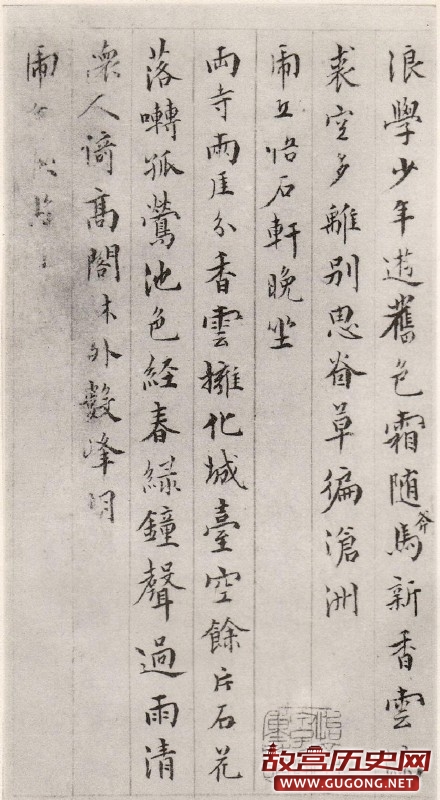 浪學少年遊舊色霜随馬新香雲
裘空多離別思春草徧滄洲
虎丘悟石軒晚坐
兩寺兩厓分香雲擁化城臺空餘片石花
落囀孤鶯池色経春緑鐘聲過雨清
懷人倚高閣木外數峰明
虎
故宫历史网
WWW.GUGONG.NET